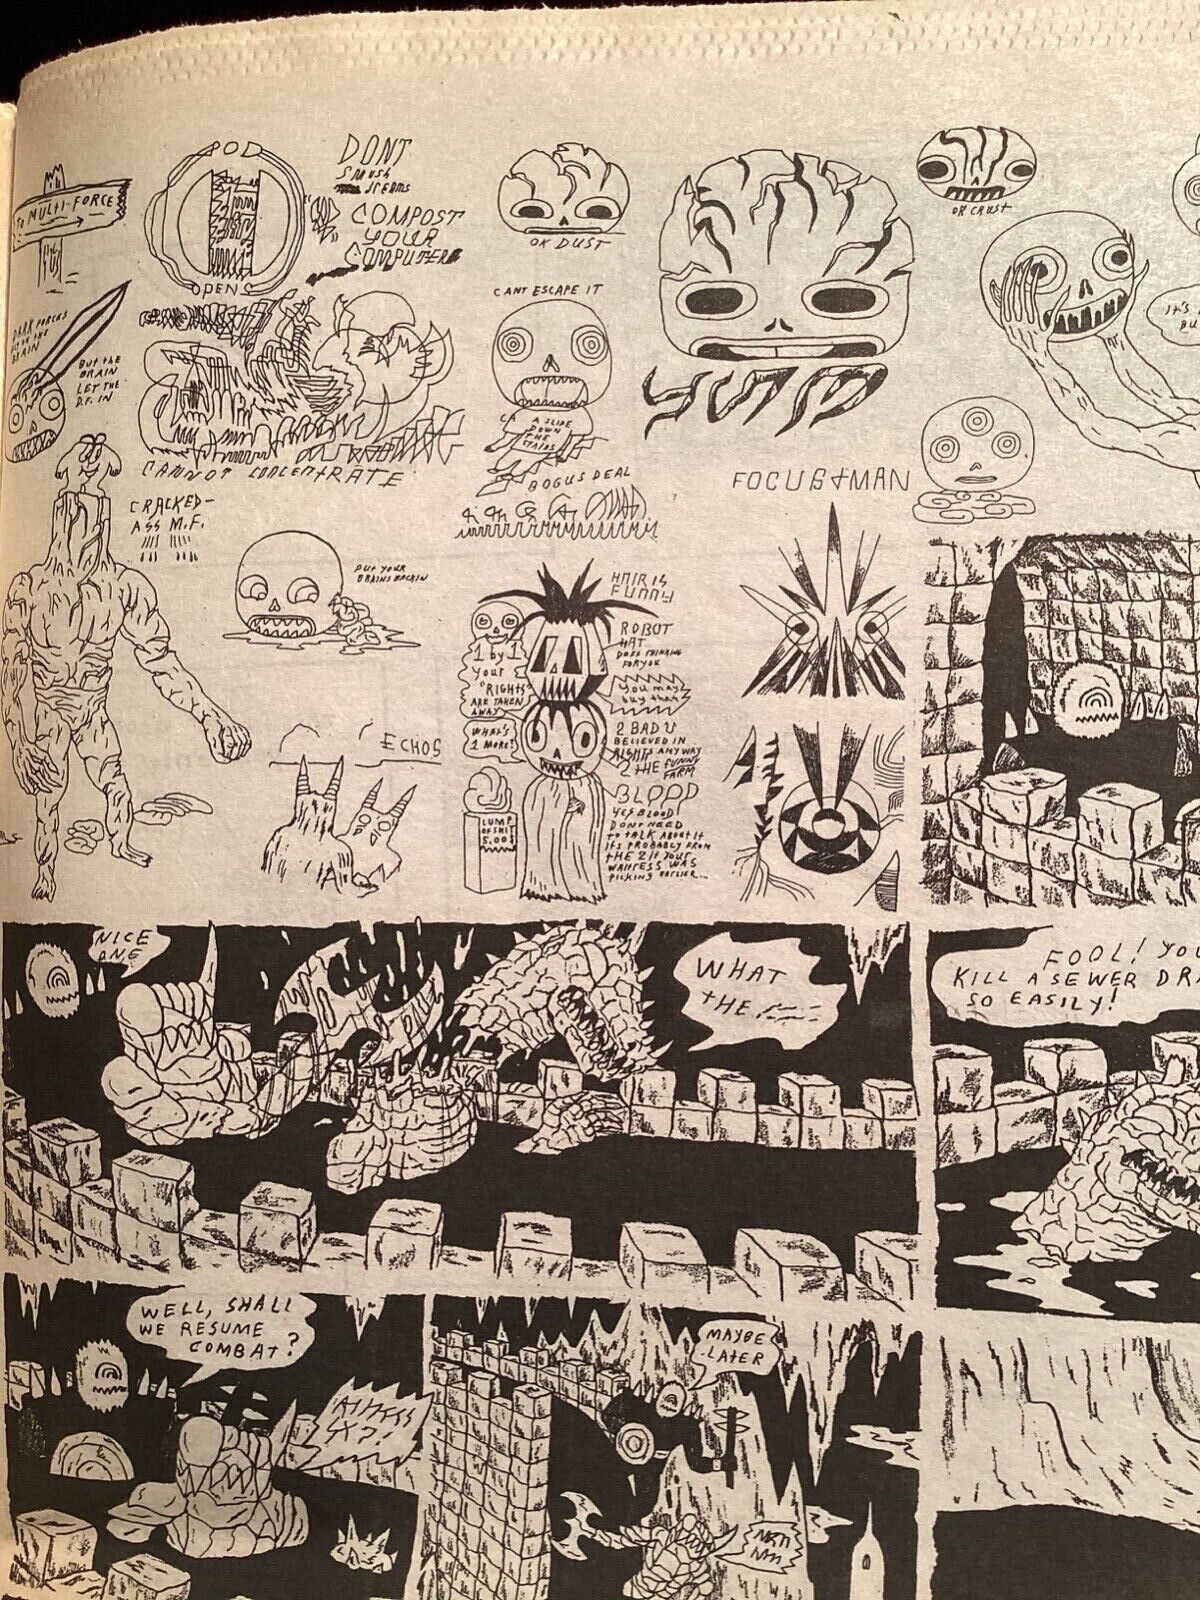 TO MULTI-FORCE
OPEN
DONT
SMUSH
COMPOST
YOUR
COMPUTER
OK DUST
OR CRUST
CANT ESCAPE IT
DARK FORCES
IN THE
BRAIN
BUT THE
BRAIN
LET THE
D.F. IN
A SLIDE
DOWN
THE
STAIRS
CANNOT CONCENTRATE
BOGUS DEAL
FOCUS MAN
CRACKED-
ASS M.F.
PUT YOUR
BRAINS BACK IN
HAIR IS
FUNNY
ROBOT
HAT
DOES THINKING
FOR YOU
1 by 1
your
"RIGHTS
ARE TAKEN
AWAY
You may
buy them
WHAT'S
1 MORE?
2 BAD U
BELIEVED IN
RIGHTS ANYWAY
2 THE FUNNY
FARM
ECHOS
BLOOD
YEP BLOOD
DONT NEED
TO TALK ABOUT IT
ITS PROBABLY FROM
THE 2 IF YOUR
WAITRESS WAS
PICKING EARLIER...
LUMP
OF SHIT
5.00$
IT'S
NICE
ONE
WHAT
THE
FOOL! YOU
KILL A SEWER DRA
SO EASILY!
WELL, SHALL
WE RESUME
COMBAT?
MAYBE
LATER